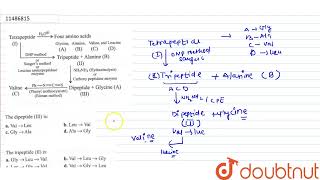 11486815
Tetrapeptide H₃O⊕ Four amino acids
(I) Glycine, Alanine, Valine, and Leucine
(A) (B) (C) (D)
DNP method
or
Sanger's method
or
Leucine aminopeptidase
enzyme
Tripeptide + Alanine (B)
(II)
NH₂NH₂ (Hydrazinolysis)
or
Carboxy peptidase enzyme
Valine
(C)
PhNCS
(Phenyl isothiocyanate)
(Edman method)
Dipeptide + Glycine (A)
(III)
The dipeptide (III) is:
a. Val → Leu b. Leu → Val
c. Gly → Ala d. Ala → Gly
The tripeptide (II) is:
a. Gly → Leu → Val b. Leu → Val → Gly
c. Val → Leu → Gly d. Val → Gly → Leu
A → Gly
B → Ala
C → Val
D → Leu
Tetrapeptide
(I)
DNP method
Sanger's
(II) Tripeptide + Alanine (B)
A C D
Dipeptide + Glycine
(III)
valine
Val → Leu
leucine
doubtnut